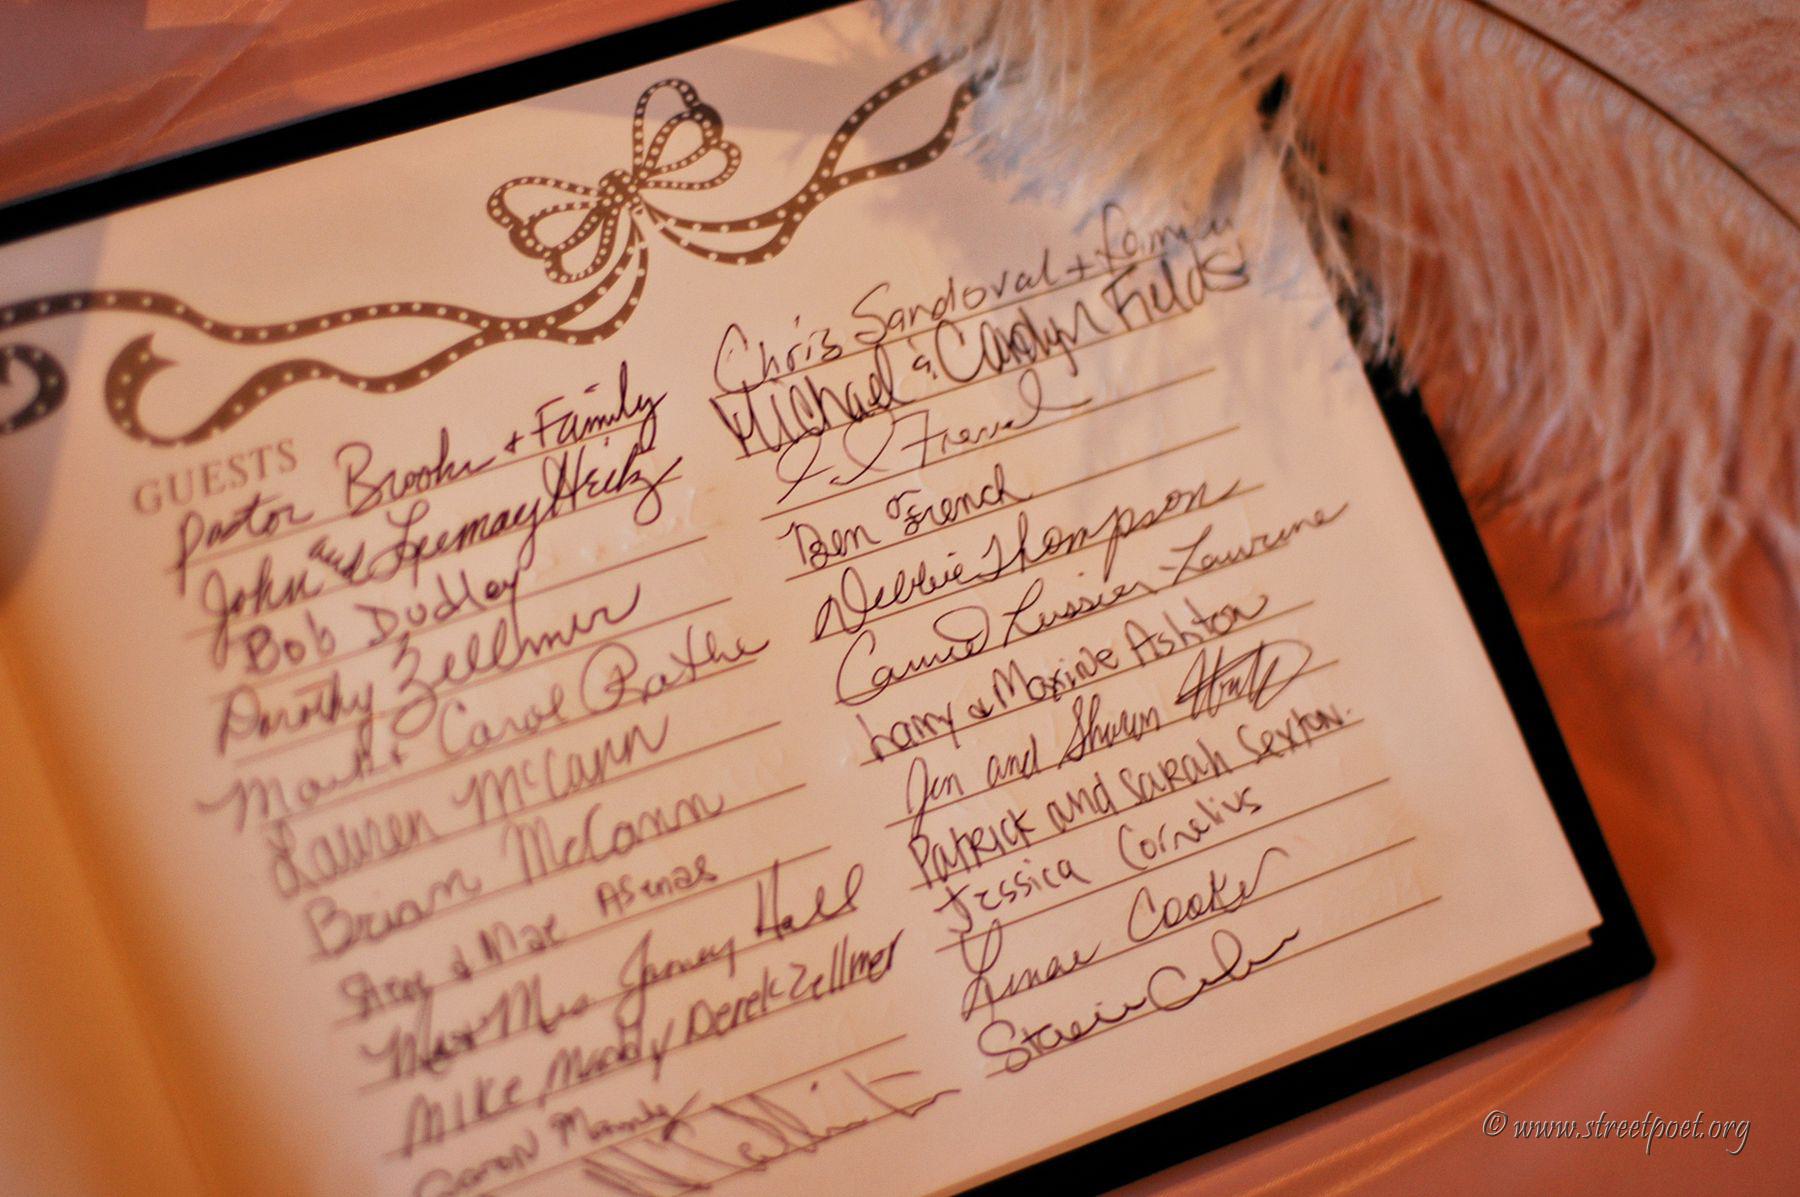 GUESTS
Pastor Brooks + Family
John and Leemay Heitz
Bob Dudley
Dorothy Zellmer
Mark + Carol Rathe
Lauren McCann
Brian McCann
Steve & Mae Asenas
Mr + Mrs Jamey Hall
Mike, Mandy, Derek Zellmer
Aaron
Chris Sandoval + Family
Michael & Carolyn Fields
Ben French
Debbie Thompson
Lussier-Laurune
Larry & Maxine Ashton
Jen and Sharon
Patrick and Sarah Sexton.
Jessica Cornelius
Linae Cooke
Stacie
© www.streetpoet.org